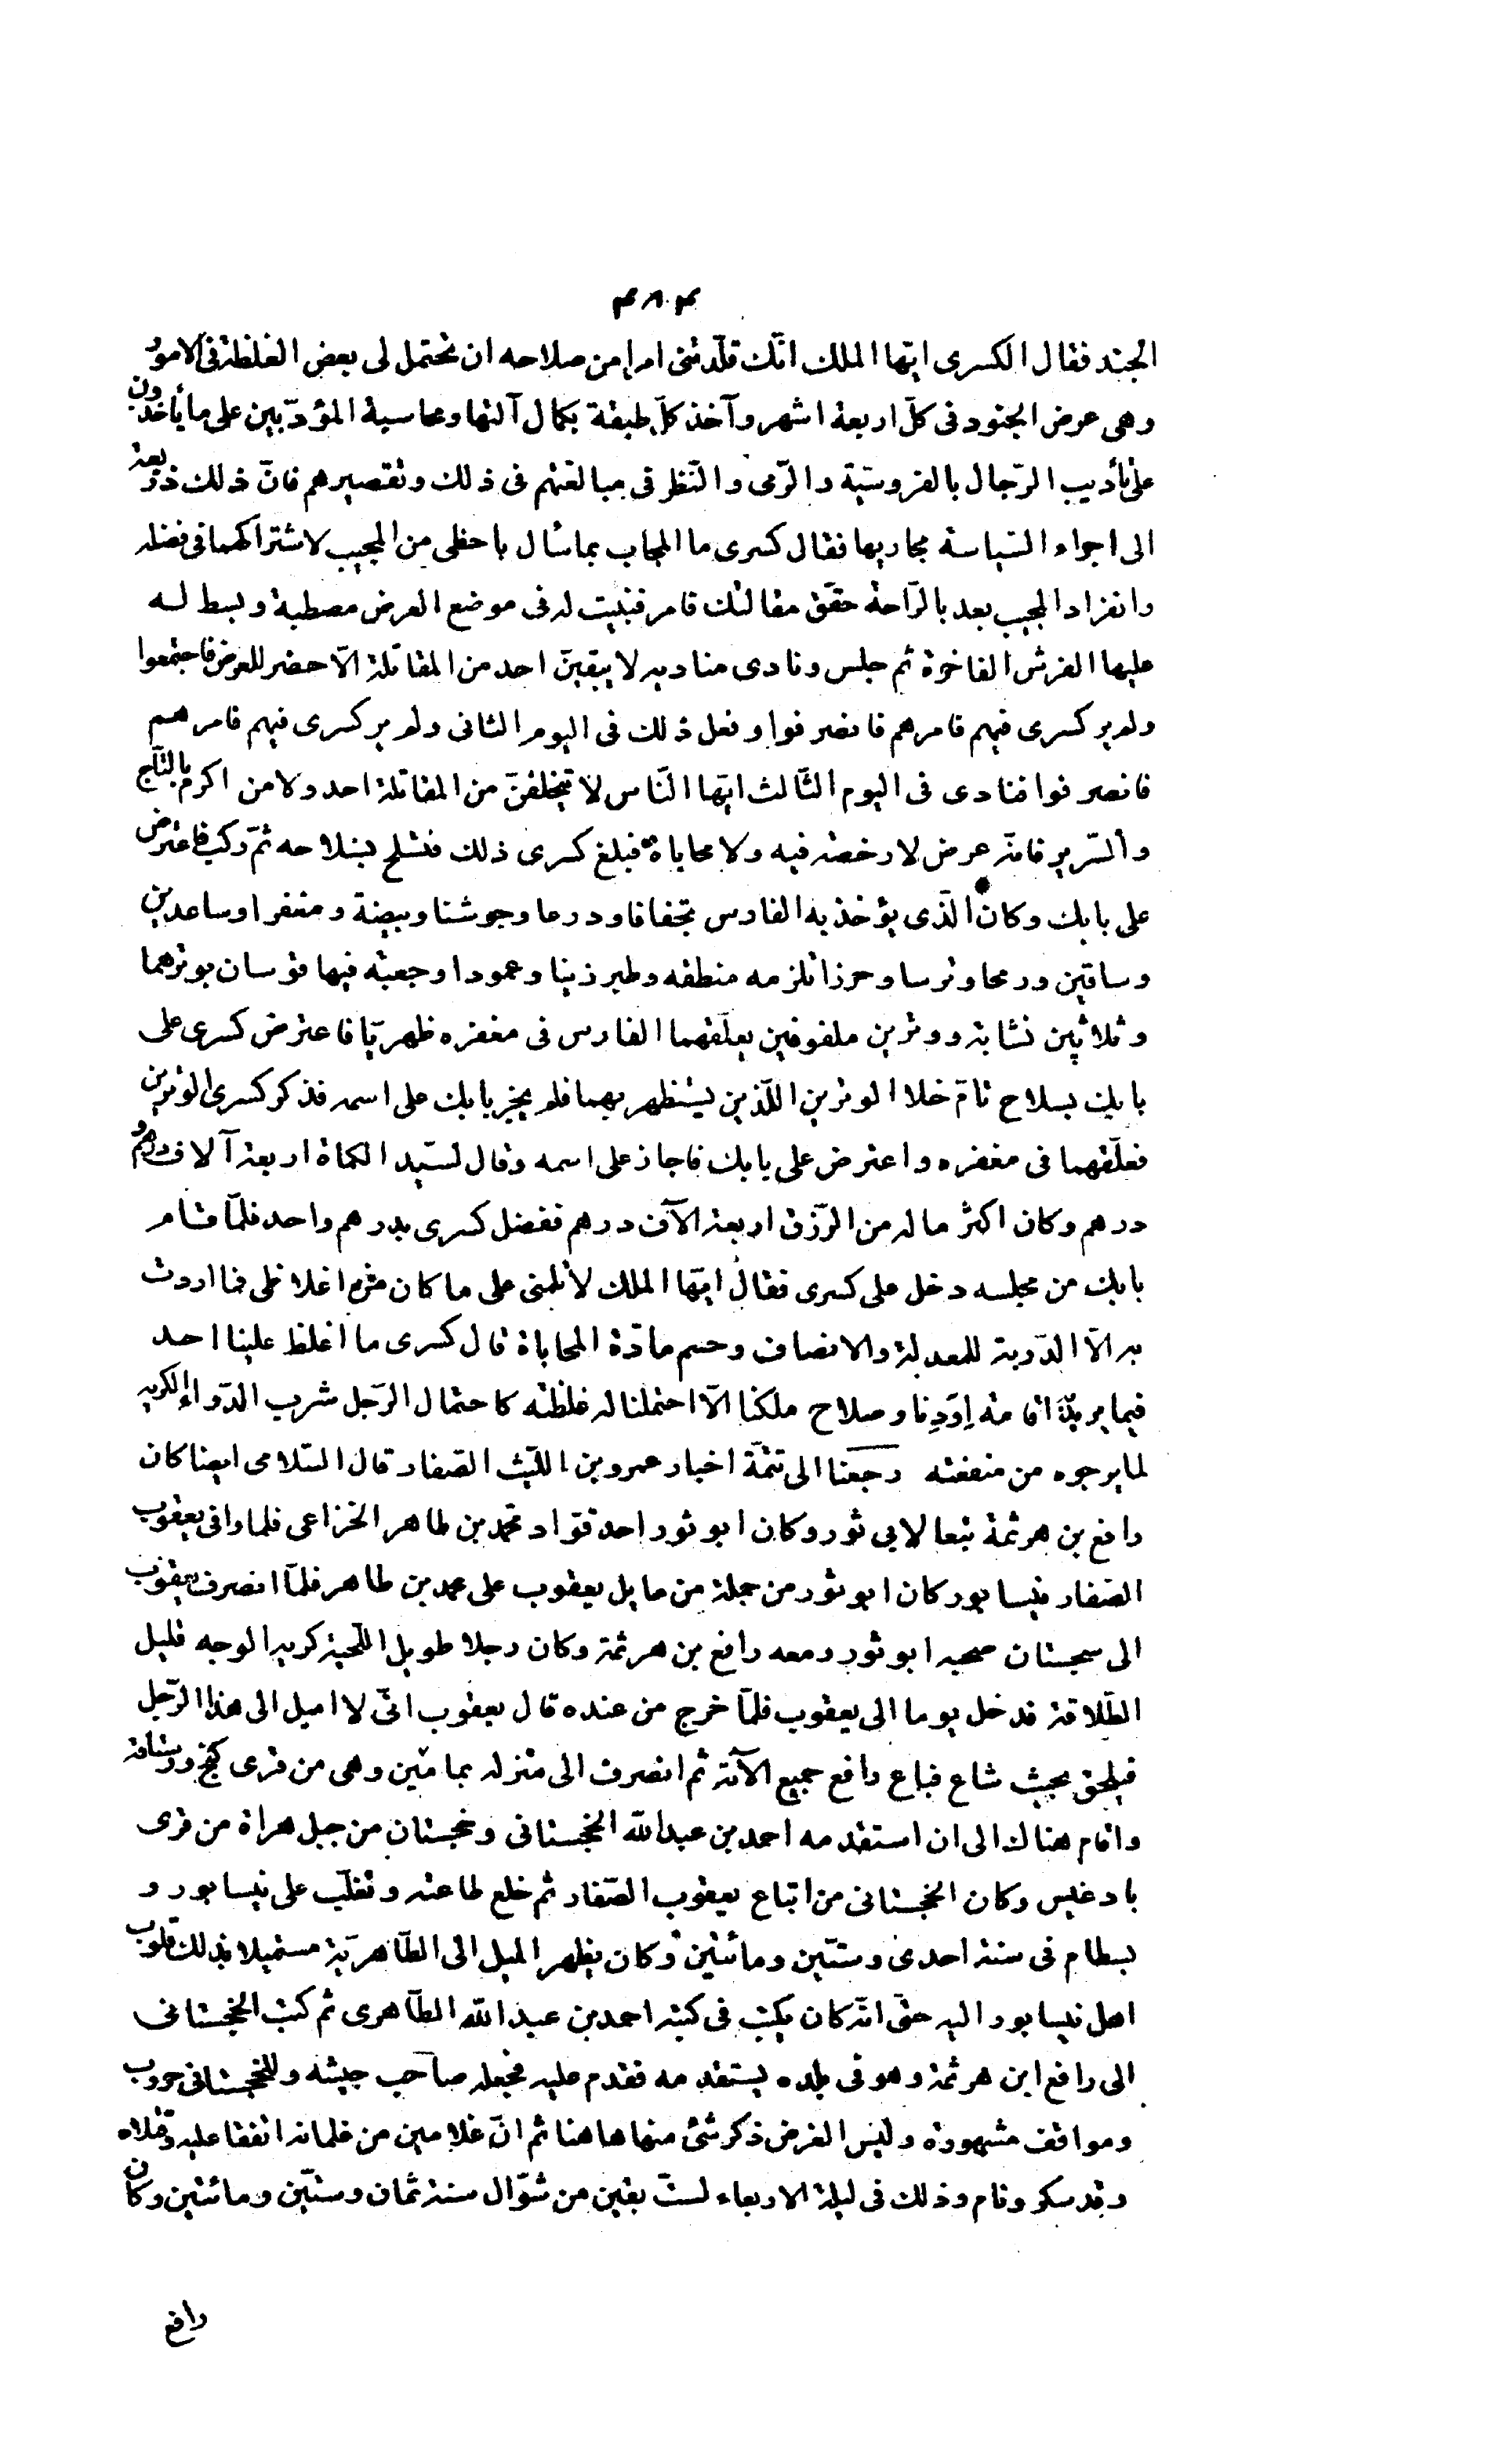 ٣٨٣
الجند فقال الكسرى ايّها الملك انّك قلّدتنى امرا من صلاحه ان تحتمل لى بعض الغلظة فى الامور
وهى عرض الجنود فى كلّ اربعة اشهر وآخذ كلّ طبقة بكمال آلتها ومحاسبة المؤدّبين على ما يأخذون
على تأديب الرّجال بالفروسيّة والرّمى والنّظر فى مبالغتهم فى ذلك وتقصيرهم فانّ ذلك ذريعة
الى اجراء السّياسة مجاريها فقال كسرى ما المجاب بما سأل باحظى من المجيب لاشتراكهما فى فضله
وانفراد المجيب بعد بالرّاحة حقّق مقالتك فامر فبنيت له فى موضع العرض مصطبة وبسط له
عليها الفرش الفاخرة ثم جلس ونادى مناديه لا يبقينّ احد من المقاتلة الّا حضر للعرض فاجتمعوا
ولم ير كسرى فيهم فامرهم فانصرفوا وفعل ذلك فى اليوم الثانى ولم ير كسرى فيهم فامرهم
فانصرفوا فنادى فى اليوم الثّالث ايّها النّاس لا يتخلفنّ من المقاتلة احد ولا من اكرم بالتّاج
والسّرير فانّه عرض لا رخصة فيه ولا محاباة فبلغ كسرى ذلك فتسلح بسلاحه ثمّ ركب فاعترض
على بابك وكان الّذى يؤخذ به الفارس تجفافا ودرعا وجوشنا وبيضة ومغفرا وساعدين
وساقين ورمحا وترسا وجرزا تلزمه منطقه وطبرزينا وعمودا وجعبته فيها قوسان بوترهما
وثلاثين نشابة ووترين ملفوفين يعلّقهما الفارس فى مغفره ظهريّا فاعترض كسرى على
بابك بسلاح تامّ خلا الوترين اللّذين يستظهر بهما فلم يجز بابك على اسمه فذكر كسرى الوترين
فعلّقهما فى مغفره واعترض على بابك فاجاز على اسمه وقال لسيّد الكماة اربعة آلاف درهم و
درهم وكان اكثر ما له من الرّزق اربعة الآف درهم ففضل كسرى بدرهم واحد فلمّا قام
بابك من مجلسه دخل على كسرى فقال ايّها الملك لا تلمنى على ما كان من اغلاظى فما اردت
به الّا الدّربة للمعدلة والانصاف وحسم مادّة المحاباة قال كسرى ما اغلظ علينا احد
فيما يريد اقامة اوَدِنا وصلاح ملكنا الّا احتملنا له غلظته كاحتمال الرّجل شرب الدّواء الكريه
لما يرجوه من منفعته رجعنا الى تتمّة اخبار عمرو بن اللّيث الصّفار قال السّلامى ايضا كان
رافع بن هرثمة تبعا لابى ثور وكان ابو ثور احد قوّاد محمّد بن طاهر الخزاعى فلما وافى يعقوب
الصّفار نيسابور كان ابو ثور من جملة من مايل يعقوب على محمد بن طاهر فلمّا انصرف يعقوب
الى سجستان صحبه ابو ثور ومعه رافع بن هرثمة وكان رجلا طويل اللّحية كريه الوجه قليل
الطّلاقة فدخل يوما الى يعقوب فلمّا خرج من عنده قال يعقوب انّى لا اميل الى هذا الرّجل
فيلحق بحيث شاع فباع رافع جميع الآته ثم انصرف الى منزله بمامئين وهى من قرى كنج ورستاقه
واقام هناك الى ان استقدمه احمد بن عبد الله الخجستانى وخجستان من جبل هراة من قرى
بادغيس وكان الخجستانى من اتباع يعقوب الصّفار ثم خلع طاعته وتغلّب على نيسابور و
بسطام فى سنة احدى وستّين ومائتين وكان يظهر الميل الى الطّاهريّة مستميلا بذلك قلوب
اهل نيسابور اليه حتّى انّه كان يكتب فى كتبه احمد بن عبد الله الطّاهرى ثم كتب الخجستانى
الى رافع ابن هرثمة وهو فى بلده يستقدمه فقدم عليه فجعله صاحب جيشه وللخجستانى حروب
ومواقف مشهورة وليس الغرض ذكر شئ منها هاهنا ثم انّ غلامين من غلمانه اتفقا عليه وقتلاه
وقد سكر ونام وذلك فى ليلة الاربعاء لستّ بقين من شوّال سنة ثمان وستّين ومائتين وكان
رافع